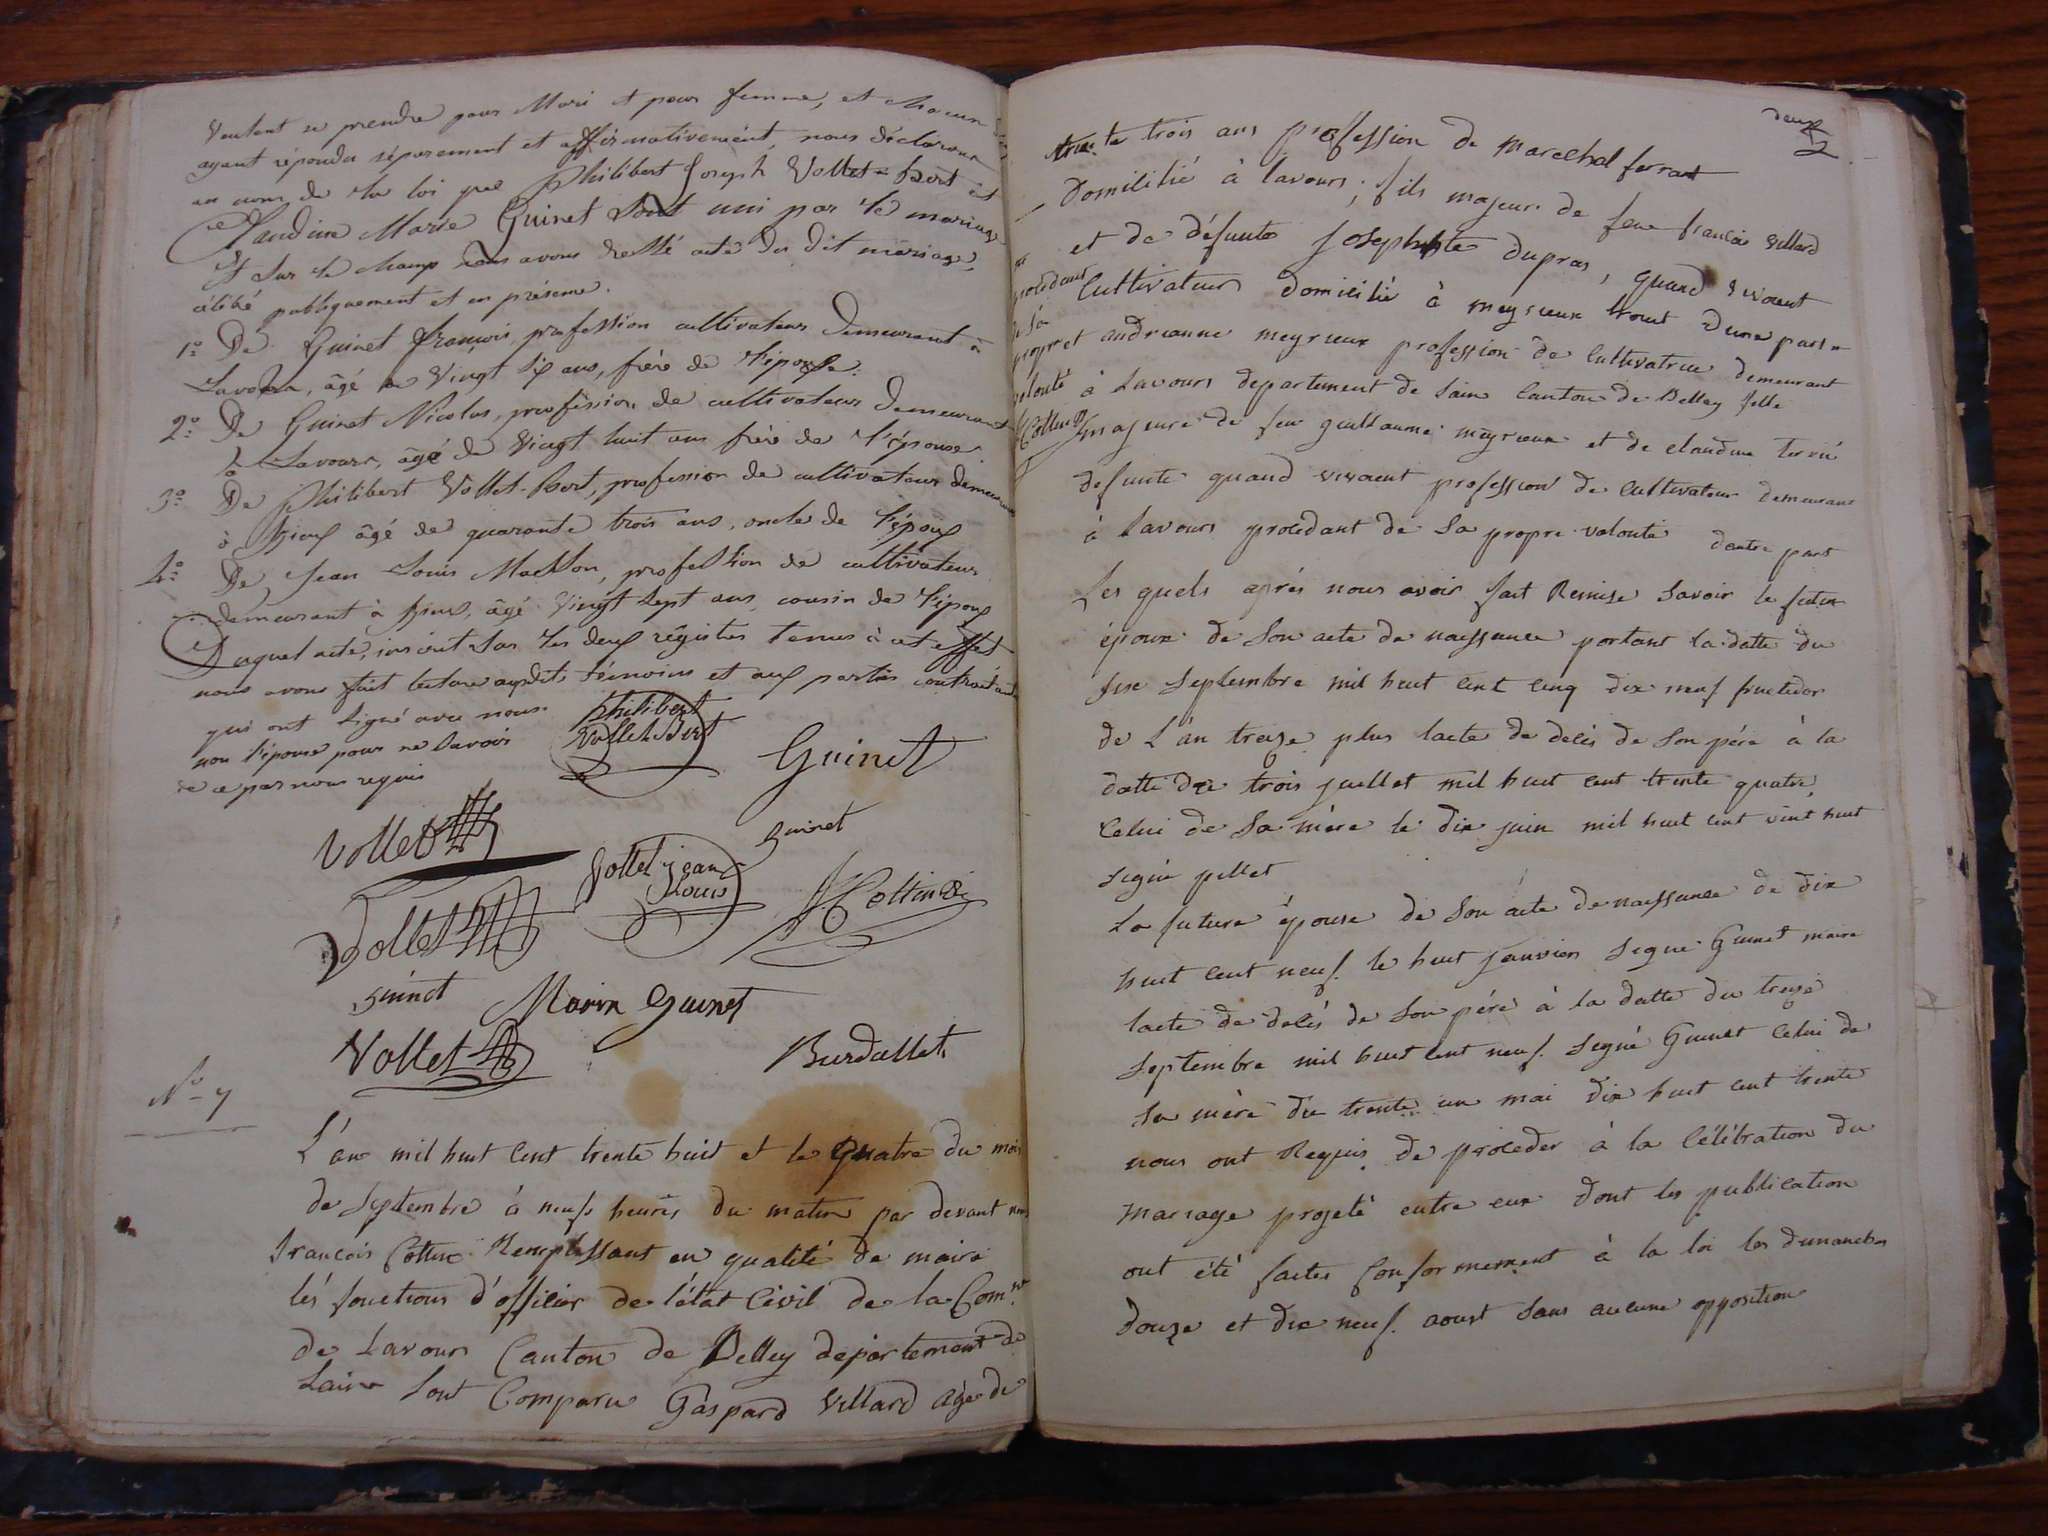 Voulant se prendre pour Mari et pour femme, et chacun
ayant répondu séparement et affirmativement, nous déclarons
au nom de la loi que Philibert Joseph Vollet-Bert et
Claudine Marie Guinet sont uni par le mariage
Et sur le champ nous avons dressé acte du dit mariage,
célébré publiquement et en présence.
1º De Guinet françois profession cultivateur demeurant à
Lavours, âgé de Vingt six ans, frère de l'épouse.
2º De Guinet Nicolas, profession de cultivateur demeurant
à Lavours, âgé de Vingt huit ans frère de l'épouse
3º De Philibert Vollet-Bert, profession de cultivateur demeurant
à âgé de quarante trois ans, oncle de l'époux
4º De Jean Louis Masson, profession de cultivateur
demeurant à âgé Vingt sept ans, cousin de l'époux
Duquel acte, inscrit sur les deux régistres tenus à cet effet
nous avons fait lecture auxdits témoins et aux parties contractantes
qui ont signé avec nous
non l'épouse pour ne savoir
de ce par nous requis
Philibert
Vollet Bert
Guinet
Vollet
Guinet
Vollet jean
Louis
Vollet
Cottin
Guinet
Marin Guinet
Vollet
Burdallet
Nº 7
L'an mil huit cent trente huit et le Quatre du mois
de Septembre à neufs heures du matin par devant nous
francois Cottin Remplissant en qualité de maire
lés fonctions d'officier de l'état Civil de la Comne
de Lavours Canton de Belley département de
Lain Sont Comparu Gaspard Villard agé de
deux
2
trente trois ans profession de marechal ferrant
Domicilié à lavours, fils majeur de feu francois villard
et de défunte Josephte dupras, quand vivoient
Cultivateur domicilié à meyrieux trouet d'une part
procédant
de sa
propre
volonté
Cottin
et andrianne meyrieux profession de cultivatrice demeurant
à Lavours departement de Lain Canton de Belley fille
majeure de feu guillaume meyrieux et de claudine
defunte quand vivoient profession de cultivateur demeurant
à Lavours procédant de sa propre volonté dautre part
Les quels aprés nous avoir fait Remise savoir le futur
époux de son acte de naissance portant la datte du
six Septembre mil huit cent cinq dix neuf fructidor
de L'an treize plus lacte de décés de son pére à la
datte du trois juillet mil huit cent trente quatre,
Celui de sa mère le dix juin mil huit cent vint huit
signé pillet
La future épouse de son acte de naissance de dix
huit cent neuf. le huit janvier signé Guinet maire
lacte de decés de son pére à la datte du treize
septembre mil huit cent neuf. signé Guinet Celui de
sa mère du trente un mai dix huit cent trente
nous ont Requis de procéder à la célébration du
mariage projeté entre eux dont les publication
ont été faites Conformement à la loi les dimanches
douze et dix neuf. aoust sans aucune opposition